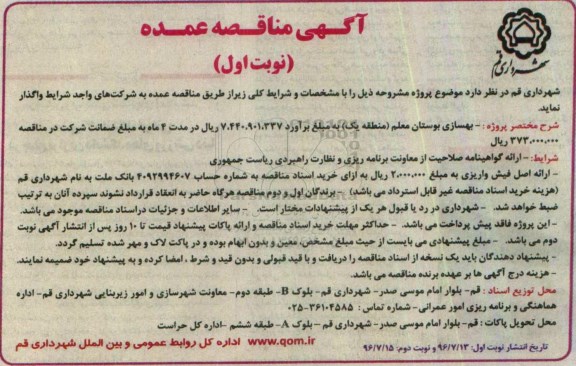 آگهی مناقصه عمده
(نوبت اول)
شهرداری قم
شهرداری قم در نظر دارد موضوع پروژه مشروحه ذیل را با مشخصات و شرایط کلی زیراز طریق مناقصه عمده به شرکت‌های واجد شرایط واگذار
نماید.
شرح مختصر پروژه : - بهسازی بوستان معلم (منطقه یک) به مبلغ برآورد ۷،۴۴۰،۹۰۱،۳۳۷ ریال در مدت ۴ ماه به مبلغ ضمانت شرکت در مناقصه
۳۷۳،۰۰۰،۰۰۰ ریال
شرایط: - ارائه گواهینامه صلاحیت از معاونت برنامه ریزی و نظارت راهبردی ریاست جمهوری
- ارائه اصل فیش واریزی به مبلغ ۲،۰۰۰،۰۰۰ ریال به ازای خرید اسناد مناقصه به شماره حساب ۴۰۹۲۹۹۴۶۰۷ بانک ملت به نام شهرداری قم
(هزینه خرید اسناد مناقصه غیر قابل استرداد می باشد) - برندگان اول و دوم مناقصه هرگاه حاضر به انعقاد قرارداد نشوند سپرده آنان به ترتیب
ضبط خواهد شد. - شهرداری در رد یا قبول هر یک از پیشنهادات مختار است. - سایر اطلاعات و جزئیات دراسناد مناقصه موجود می باشد.
- این پروژه فاقد پیش پرداخت می باشد. - حداکثر مهلت خرید اسناد مناقصه و ارائه پاکات پیشنهاد قیمت تا ۱۰ روز پس از انتشار آگهی نوبت
دوم می باشد. - مبلغ پیشنهادی می بایست از حیث مبلغ مشخص، معین و بدون ابهام بوده و در پاکت لاک و مهر شده تسلیم گردد.
- پیشنهاد دهندگان باید یک نسخه از اسناد مناقصه را دریافت و با قید قبولی و بدون قید و شرط ، امضا کرده و به پیشنهاد خود ضمیمه نمایند.
- هزینه درج آگهی ها بر عهده برنده مناقصه می باشد.
محل توزیع اسناد : قم- بلوار امام موسی صدر- شهرداری قم- بلوک B- طبقه دوم- معاونت شهرسازی و امور زیربنایی شهرداری قم- اداره
هماهنگی و برنامه ریزی امور عمرانی- شماره تماس : ۳۶۱۰۴۵۸۵-۰۲۵
محل تحویل پاکات : قم- بلوار امام موسی صدر- شهرداری قم - بلوک A- طبقه ششم -اداره کل حراست
تاریخ انتشار نوبت اول: ۹۶/۷/۱۳ و نوبت دوم: ۹۶/۷/۱۵ www.qom.ir اداره کل روابط عمومی و بین الملل شهرداری قم